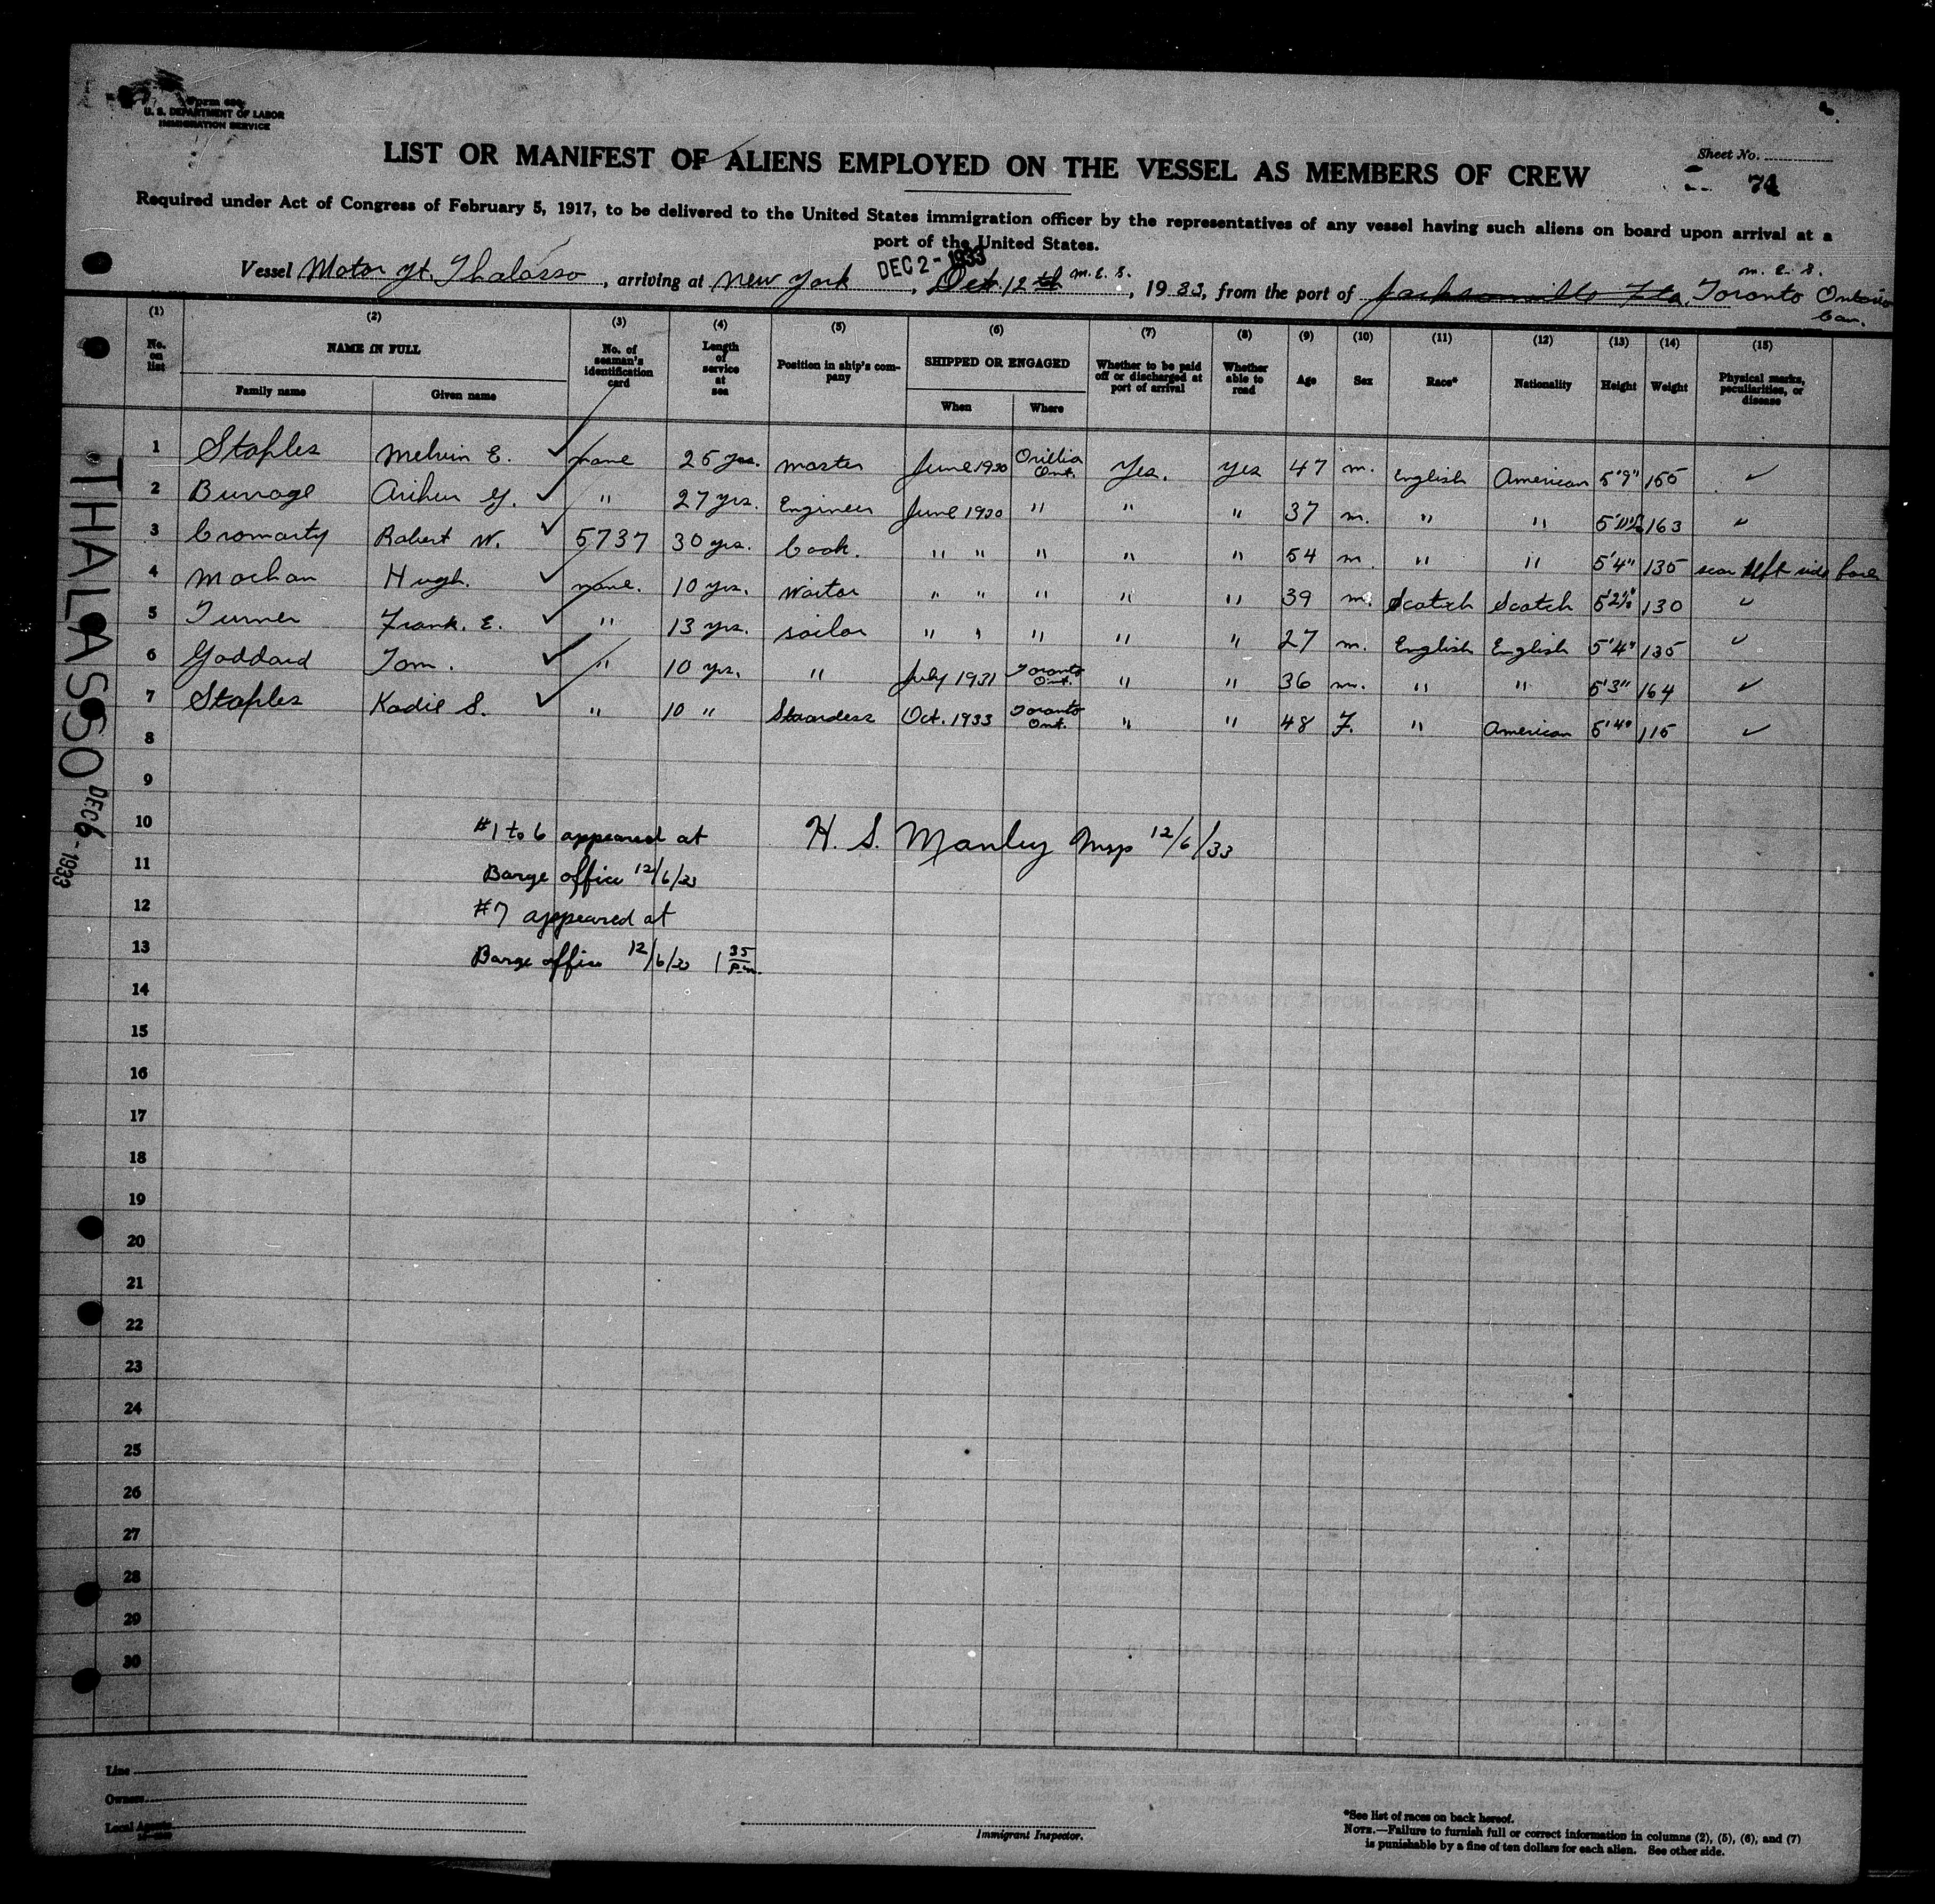 U. S. DEPARTMENT OF LABOR
IMMIGRATION SERVICE
LIST OR MANIFEST OF ALIENS EMPLOYED ON THE VESSEL AS MEMBERS OF CREW
Sheet No.
74
Required under Act of Congress of February 5, 1917, to be delivered to the United States immigration officer by the representatives of any vessel having such aliens on board upon arrival at a
port of the United States.
DEC 2 - 1933
Vessel Motor Yt. Thalasso, arriving at New York, Oct. 12th m.E.S., 1933, from the port of Jacksonville Fla. Toronto Ontario m.E.S.
Can.
(1) (2) (3) (4) (5) (6) (7) (8) (9) (10) (11) (12) (13) (14) (15)
No. on list NAME IN FULL No. of seaman's identification card Length of service at sea Position in ship's company SHIPPED OR ENGAGED Whether to be paid off or discharged at port of arrival Whether able to read Age Sex Race* Nationality Height Weight Physical marks, peculiarities, or disease
Family name Given name When Where
1 Staples Melvin E. ✓ none 25 yrs. master June 1930 Orillia Ont. Yes. Yes 47 m. English American 5'9" 155 ✓
2 Burrage ✓ " 27 yrs. Engineer June 1930 " " " 37 m. " " 163 ✓
3 Cromarty Robert W. ✓ 5737 30 yrs. Cook. " " " " " 54 m. " " 5'4" 135 scar left side face
4 Mochan Hugh. ✓ none. 10 yrs. Waiter " " " " " 39 m. Scotch Scotch 130 ✓
5 Turner Frank. E. ✓ " 13 yrs. sailor " " " " " 27 m. English English 5'4" 135 ✓
6 Goddard Tom. ✓ " 10 yrs. " July 1931 Toronto Ont. " " 36 m. " " 5'3" 164 ✓
7 Staples Kadie S. ✓ " 10 " Stuardess Oct. 1933 Toronto Ont. " " 48 F. " American 5'4" 115 ✓
8
9
10 #1 to 6 appeared at H. S. Manley Insp 12/6/33
11 Barge office 12/6/33
12 #7 appeared at
13 Barge office 12/6/33 1 35 p.m.
14
15
16
17
18
19
20
21
22
23
24
25
26
27
28
29
30
THALASSO DEC 6 - 1933
Line
Owners
Local Agents
Immigrant Inspector.
*See list of races on back hereof.
NOTE.—Failure to furnish full or correct information in columns (2), (5), (6), and (7)
is punishable by a fine of ten dollars for each alien. See other side.